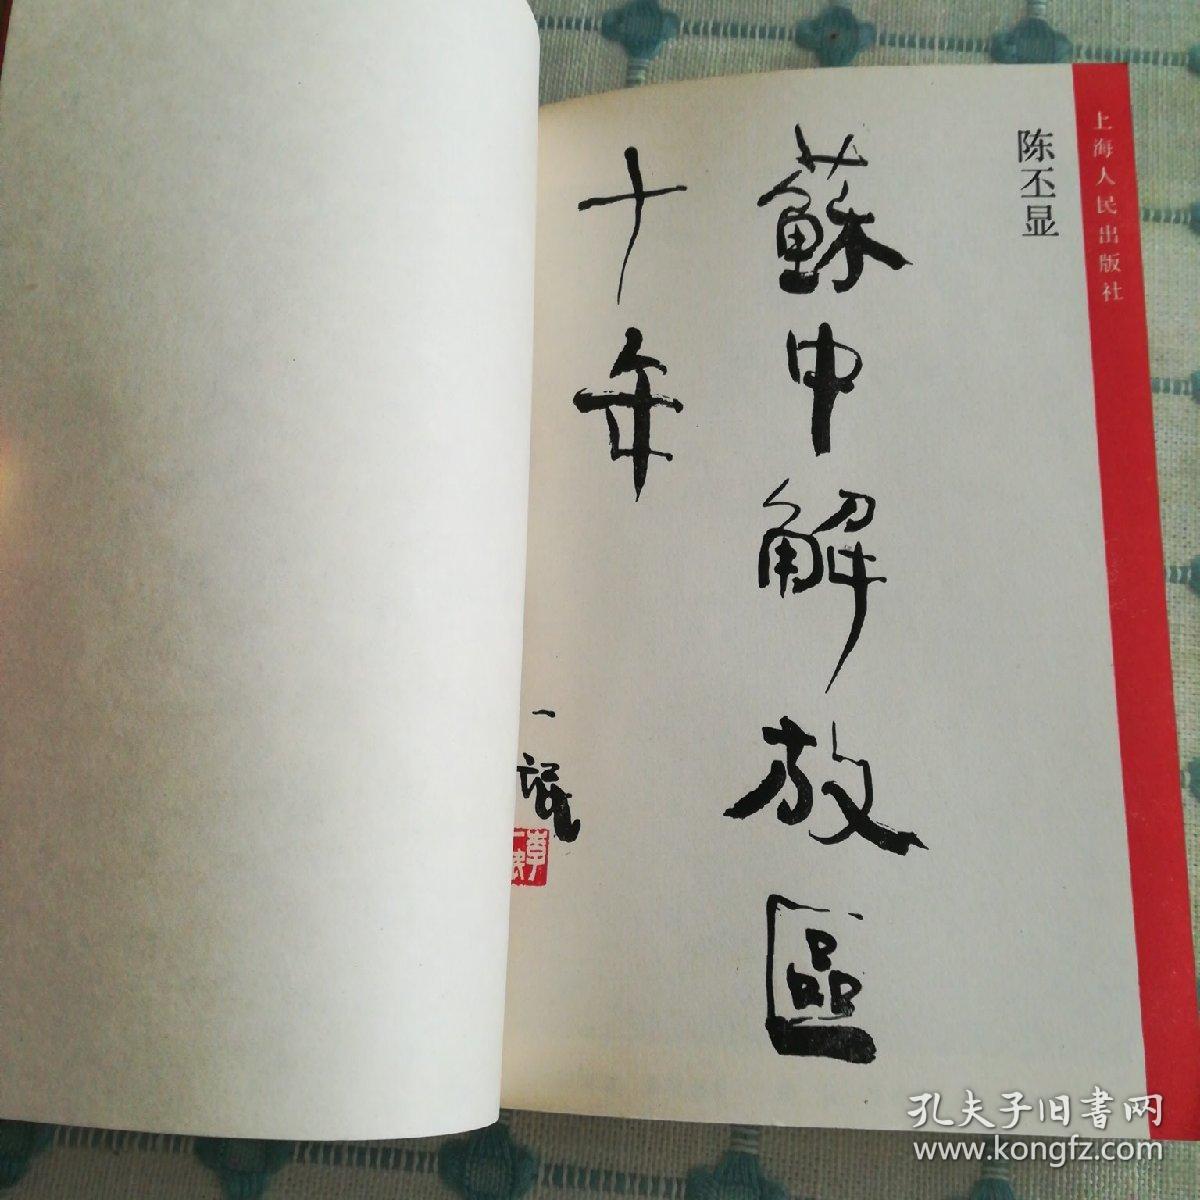 上海人民出版社
陈丕显
蘇中解放區
十年
一氓
李一氓
孔夫子旧書网
www.kongfz.com